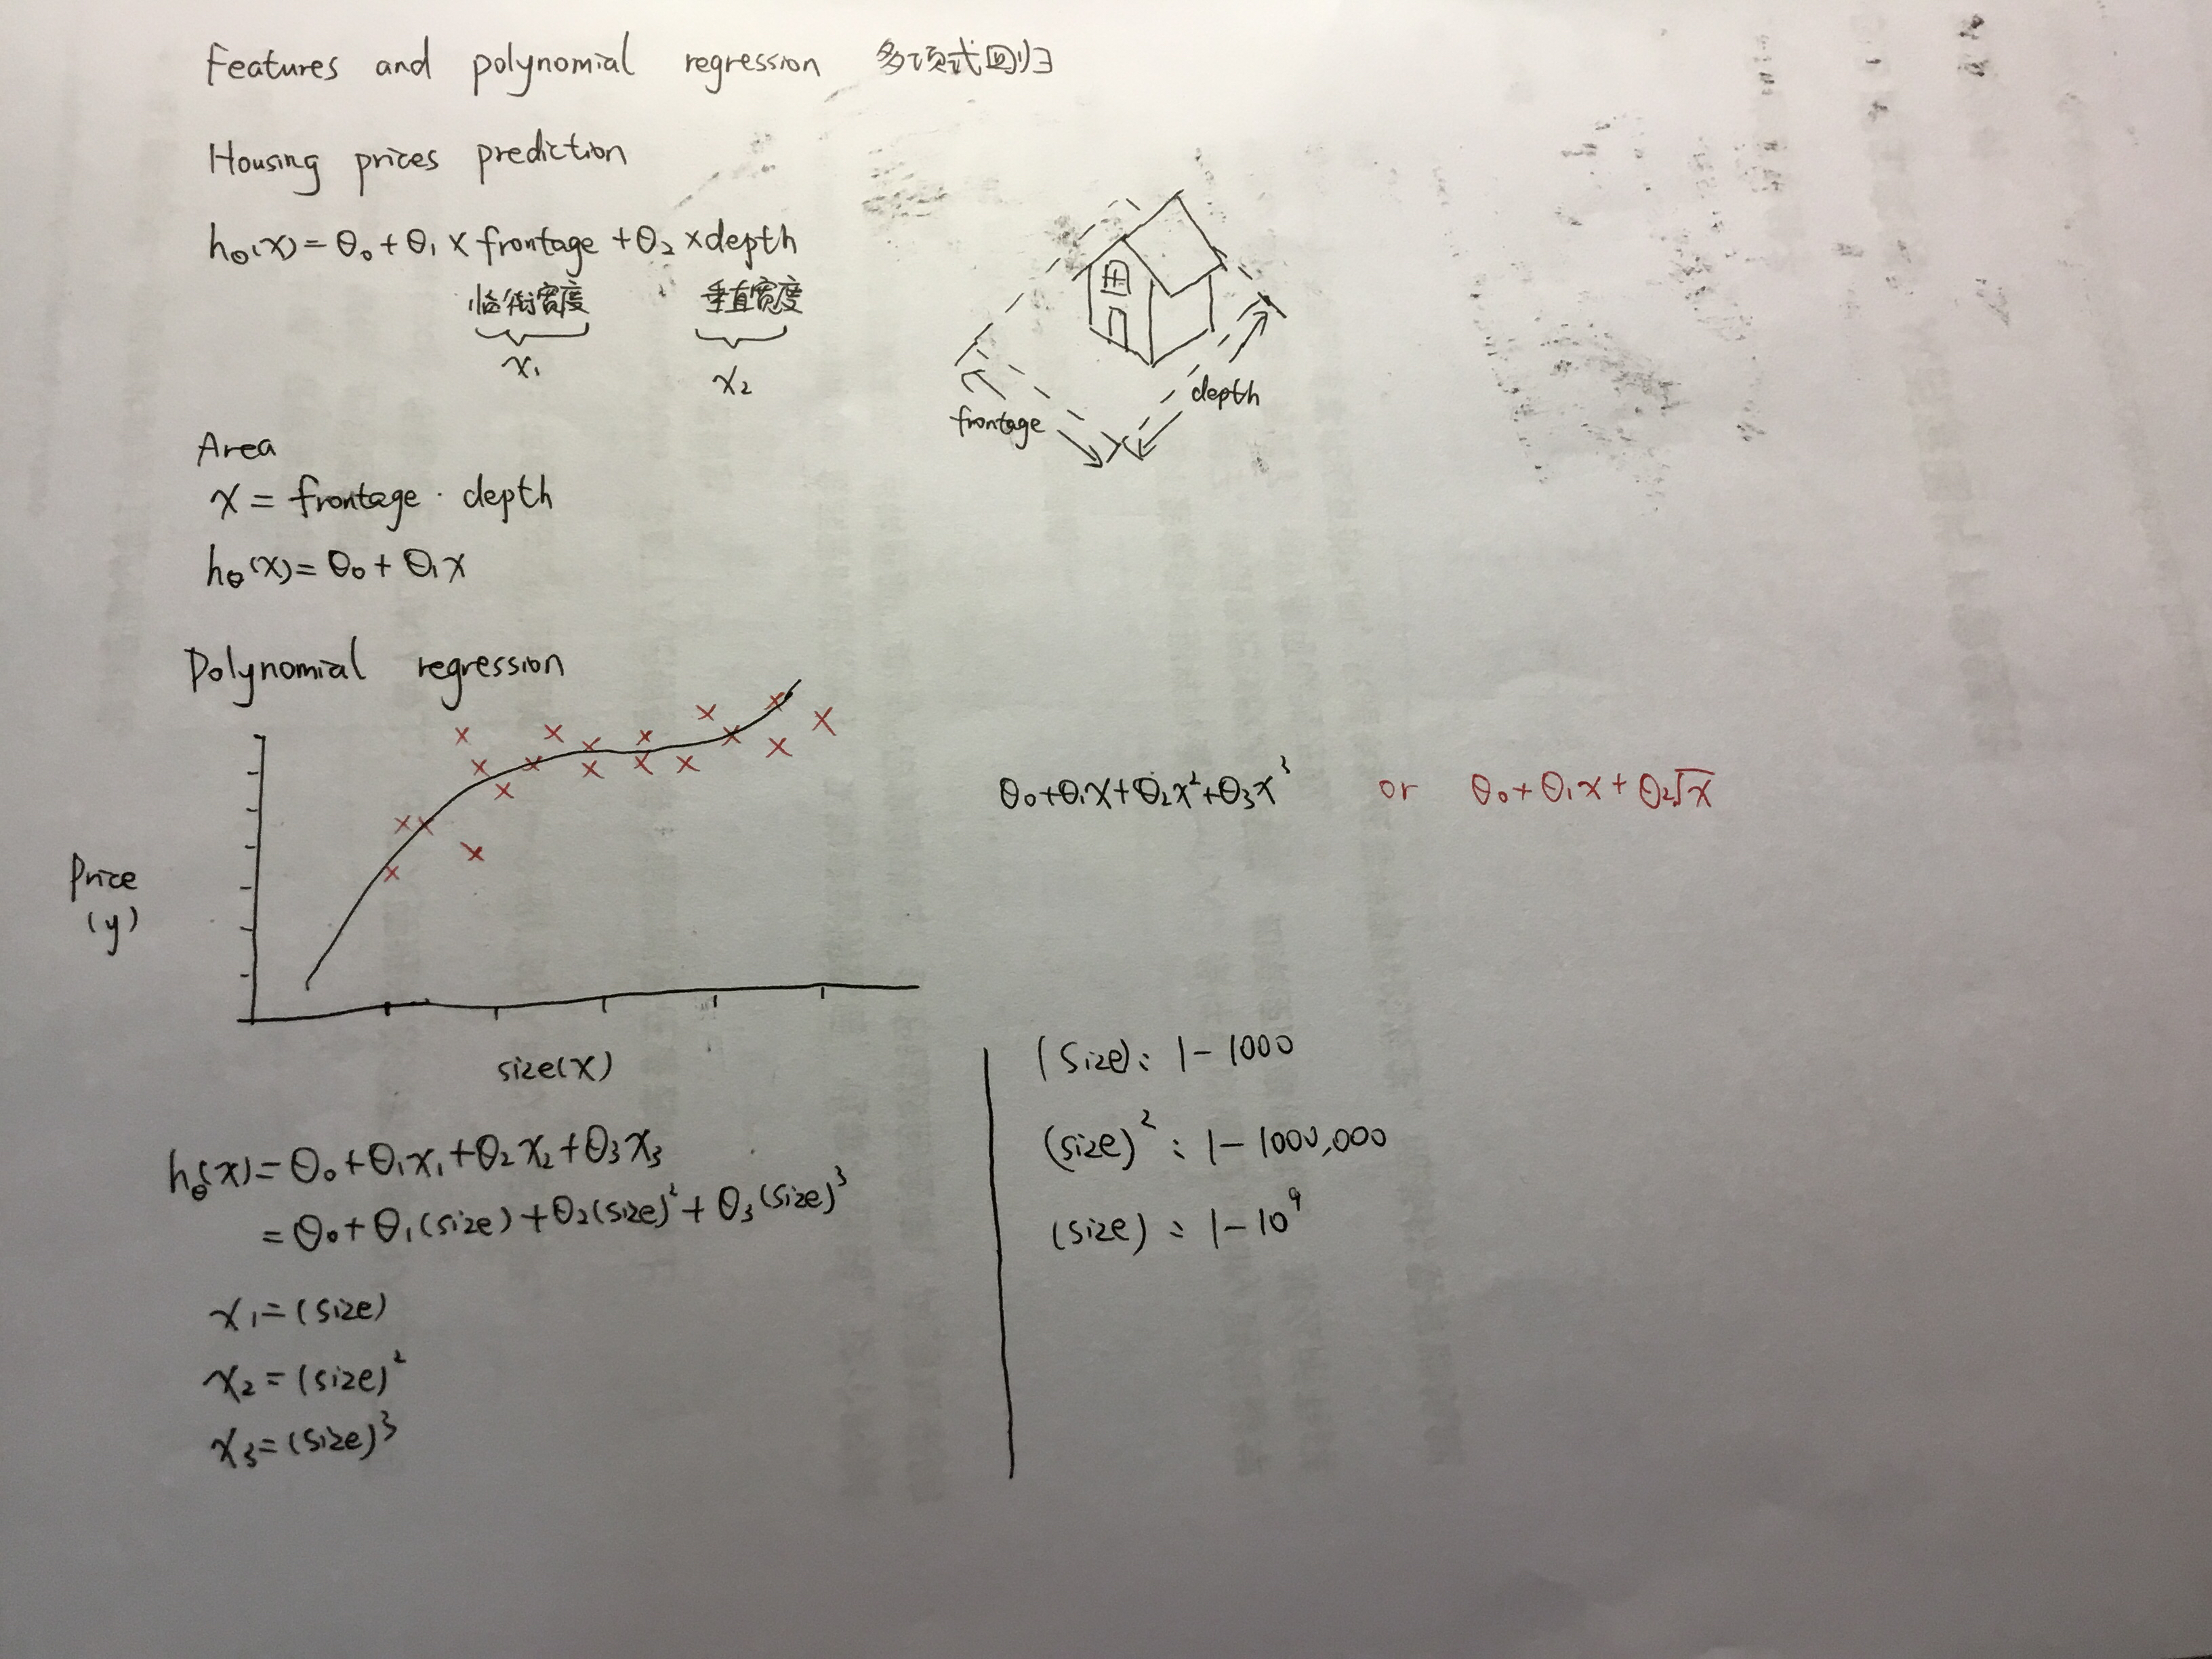 Features and polynomial regression 多项式回归
Housing prices prediction
hθ(x)=θ0+θ1×frontage+θ2×depth
临街宽度 垂直宽度
x1 x2
frontage depth
Area
x=frontage·depth
hθ(x)=θ0+θ1x
Polynomial regression
Price
(y)
size(x)
θ0+θ1x+θ2x²+θ3x³ or θ0+θ1x+θ2√x
hθ(x)=θ0+θ1x1+θ2x2+θ3x3
=θ0+θ1(size)+θ2(size)²+θ3(size)³
x1=(size)
x2=(size)²
x3=(size)³
(Size): 1-1000
(size)²: 1-1000,000
(size): 1-10⁹